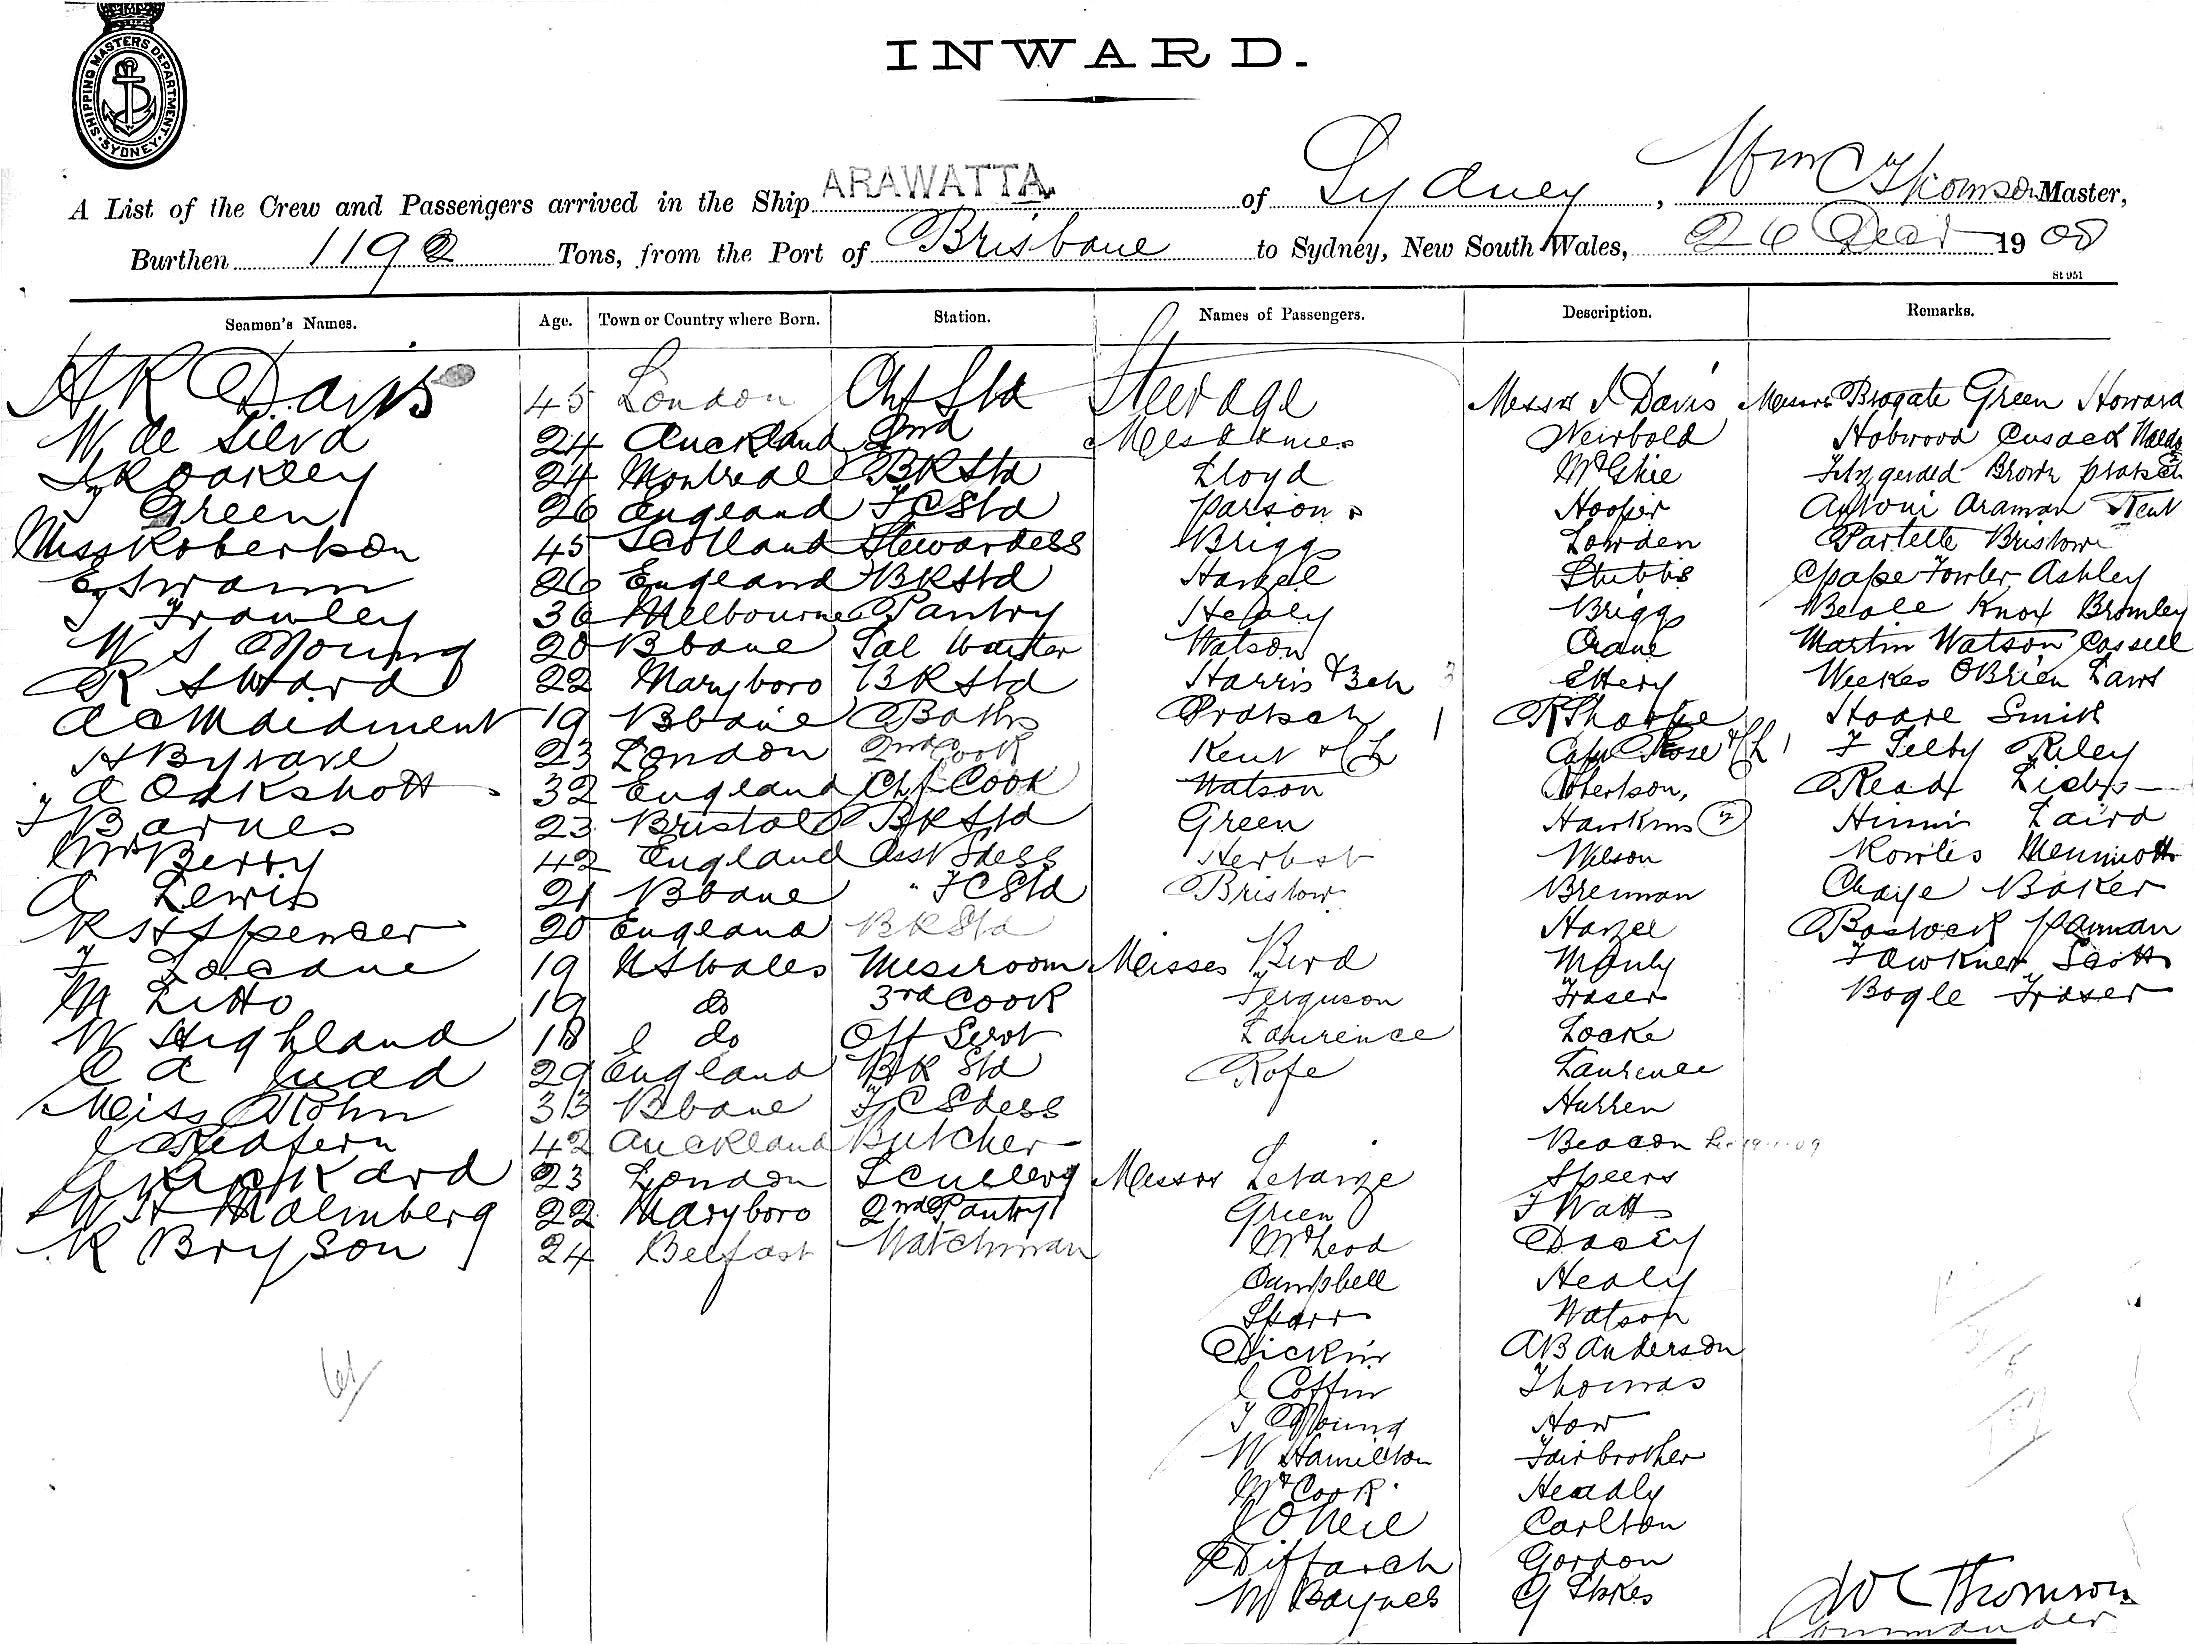 SHIPPING MASTERS DEPARTMENT. SYDNEY.
INWARD.
A List of the Crew and Passengers arrived in the Ship ARAWATTA of Sydney, Wm C Thomson Master,
Burthen 1192 Tons, from the Port of Brisbane to Sydney, New South Wales, 26 1900
St 951
Seamen's Names. Age. Town or Country where Born. Station. Names of Passengers. Description. Remarks.
H R Davis 45 London Chf Std Steerage Messrs J Davis Messrs Brogate Green Howard
W de Silva 24 Auckland 2nd Mesdames Neirbold Hobwood Cusack
Oakley 24 Montreal BR Std Lloyd McGhie Fitzgerald Brown Pratsch
T Green 26 England FC Std Parsons Hooper Antoni Araman Kent
Miss Roberkson 45 Scotland Stewardess Briggs Lowden Partelle Bristow
E Swann 26 England BR Std Hanzel Stubbs Cpape Fowler Ashley
T Frawley 36 Melbourne Pantry Healy Briggs Beale Knox Bromley
W S Young 20 Bbane Sal Waiter Watson Crane Martin Watson Cassell
R Sward 22 Maryboro BR Std Harris & 3ch 3 Ettery Weekes OBrien Laws
A C Maidment 19 Bbane Baths Pratsch 1 R Sharpe Hoare Smith
H Bygrave 23 London 2nd Cook Kent & Ch Capt Rose & Ch 1 F Selby Riley
A Oakshott 32 England Chf Cook Watson Robertson, Read
F Barnes 23 Bristol BR Std Green Hawkins (2) Laird
Mrs Berry 42 England Asst Sdess Herbst Wilson Rowles
A Lewis 21 Bbane " FC Std Bristow Brennan Chaye Baker
R H Spencer 20 England BR Std Hazel Bostock Parman
F Locane 19 NSWales Messroom Misses Bird Manly Fawkner Scott
M Litto 19 do 3rd Cook Ferguson Fraser Bogle Fraser
W Highland 18 do Off Servt Laurence Locke
C A Juad 29 England BR Std Rofe Laurence
Miss Rohn 33 Bbane FC Sdess Hurren
J Redfern 42 Auckland Butcher Beacon
Packard 23 London Scullery Messrs Letaize Speers
W H Malmberg 22 Maryboro 2nd Pantry Green F Watt
R Bryson 24 Belfast Watchman McLeod Dacey
Campbell Healy
Sparr Watson
Dickin A B Anderson
J Coffin Thomas
T Young How
W Hamilton Fairbrother
McCook Headly
J ONeil Carlton
Diffarch Gordon
M Baynes G Stokes
61
W C Thomson
Commander